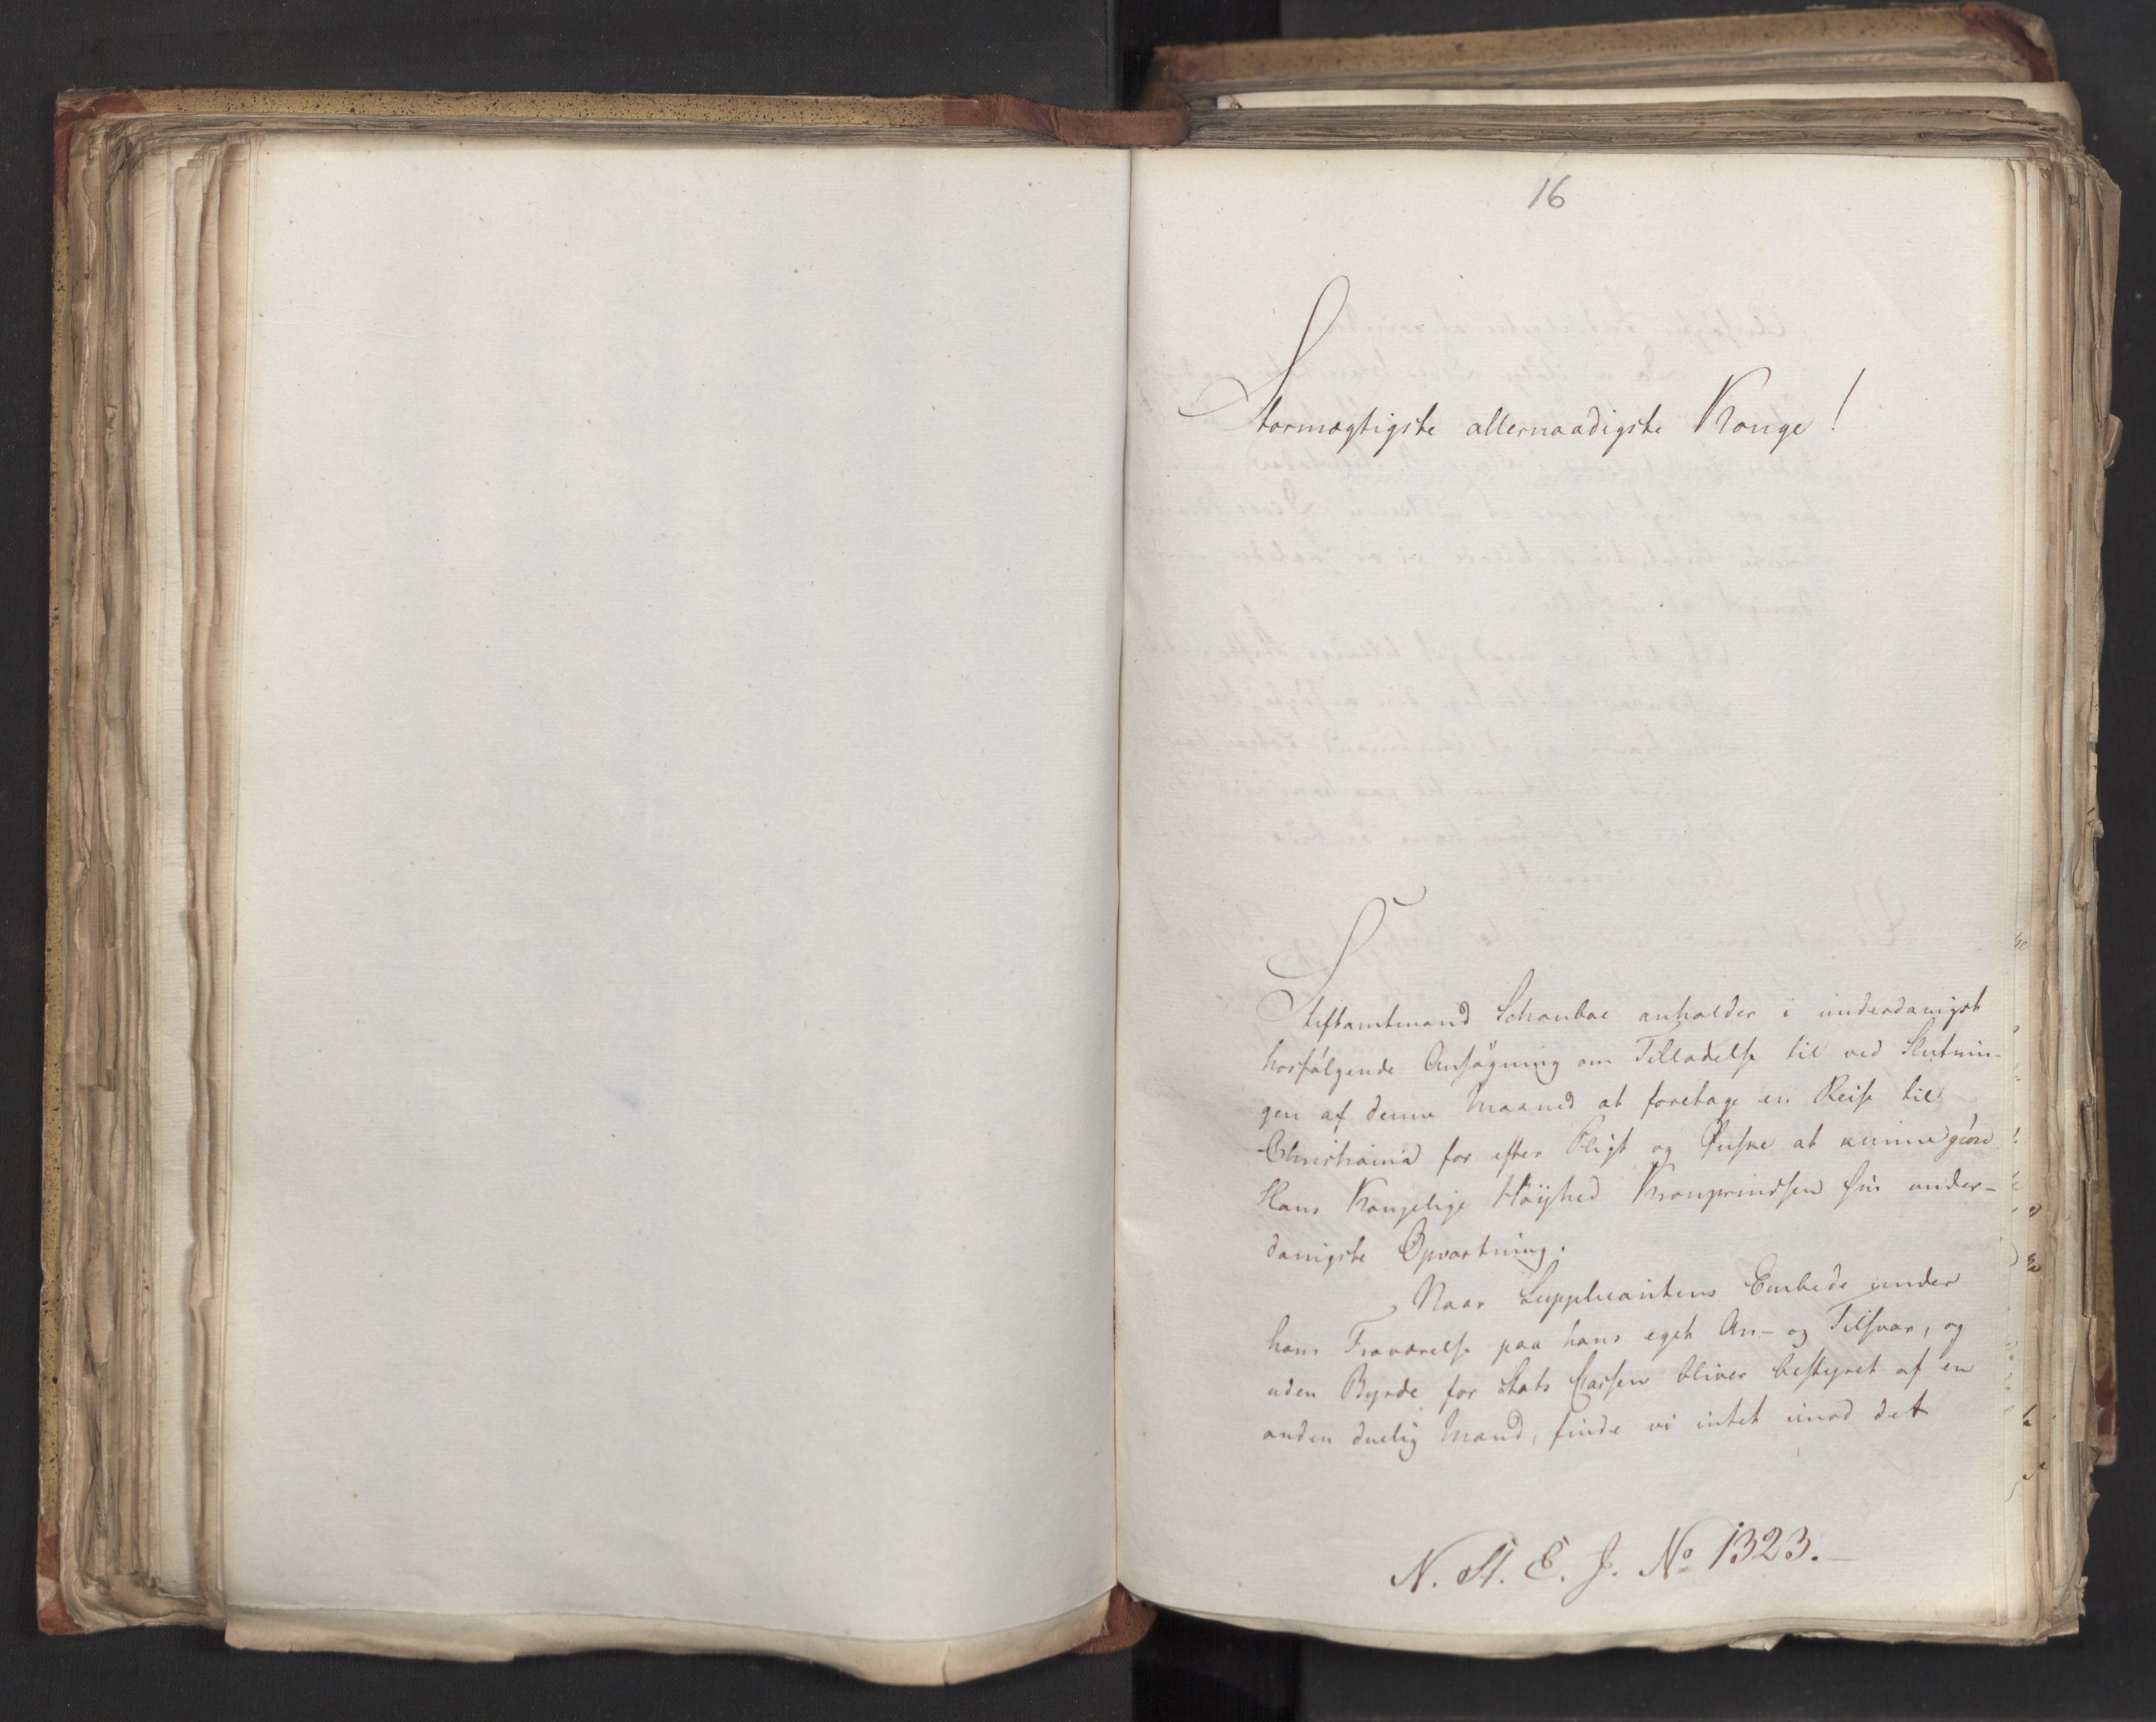 16
Stormægtigste allernaadigste Konge!
Stiftamtmand Schouboe anholder i underdanigst
hosfölgende Ansögning om Tilladelse til ved Slutnin-
gen af denne Maaned at foretage en Reise til
Christiania for efter Pligt og Önske at kunne giöre
Hans Kongelige Höÿhed Kronprindsen sin under-
danigste Opvartning.
Naar Supplicantens Embede under
hans Fraværelse paa hans eget An- og Tilsvar, og
uden Byrde for Stats Cassen bliver bestyret af en
anden duelig Mand, finde vi intet imod det
N. St. E. J. No 1323.